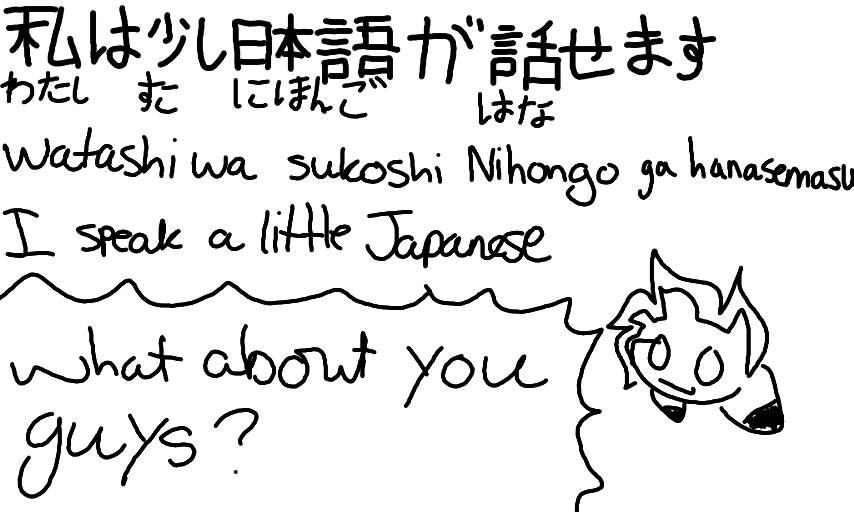 私は少し日本語が話せます
わたし すこ にほんご はな
watashi wa sukoshi Nihongo ga hanasemasu
I speak a little Japanese
what about you
guys?